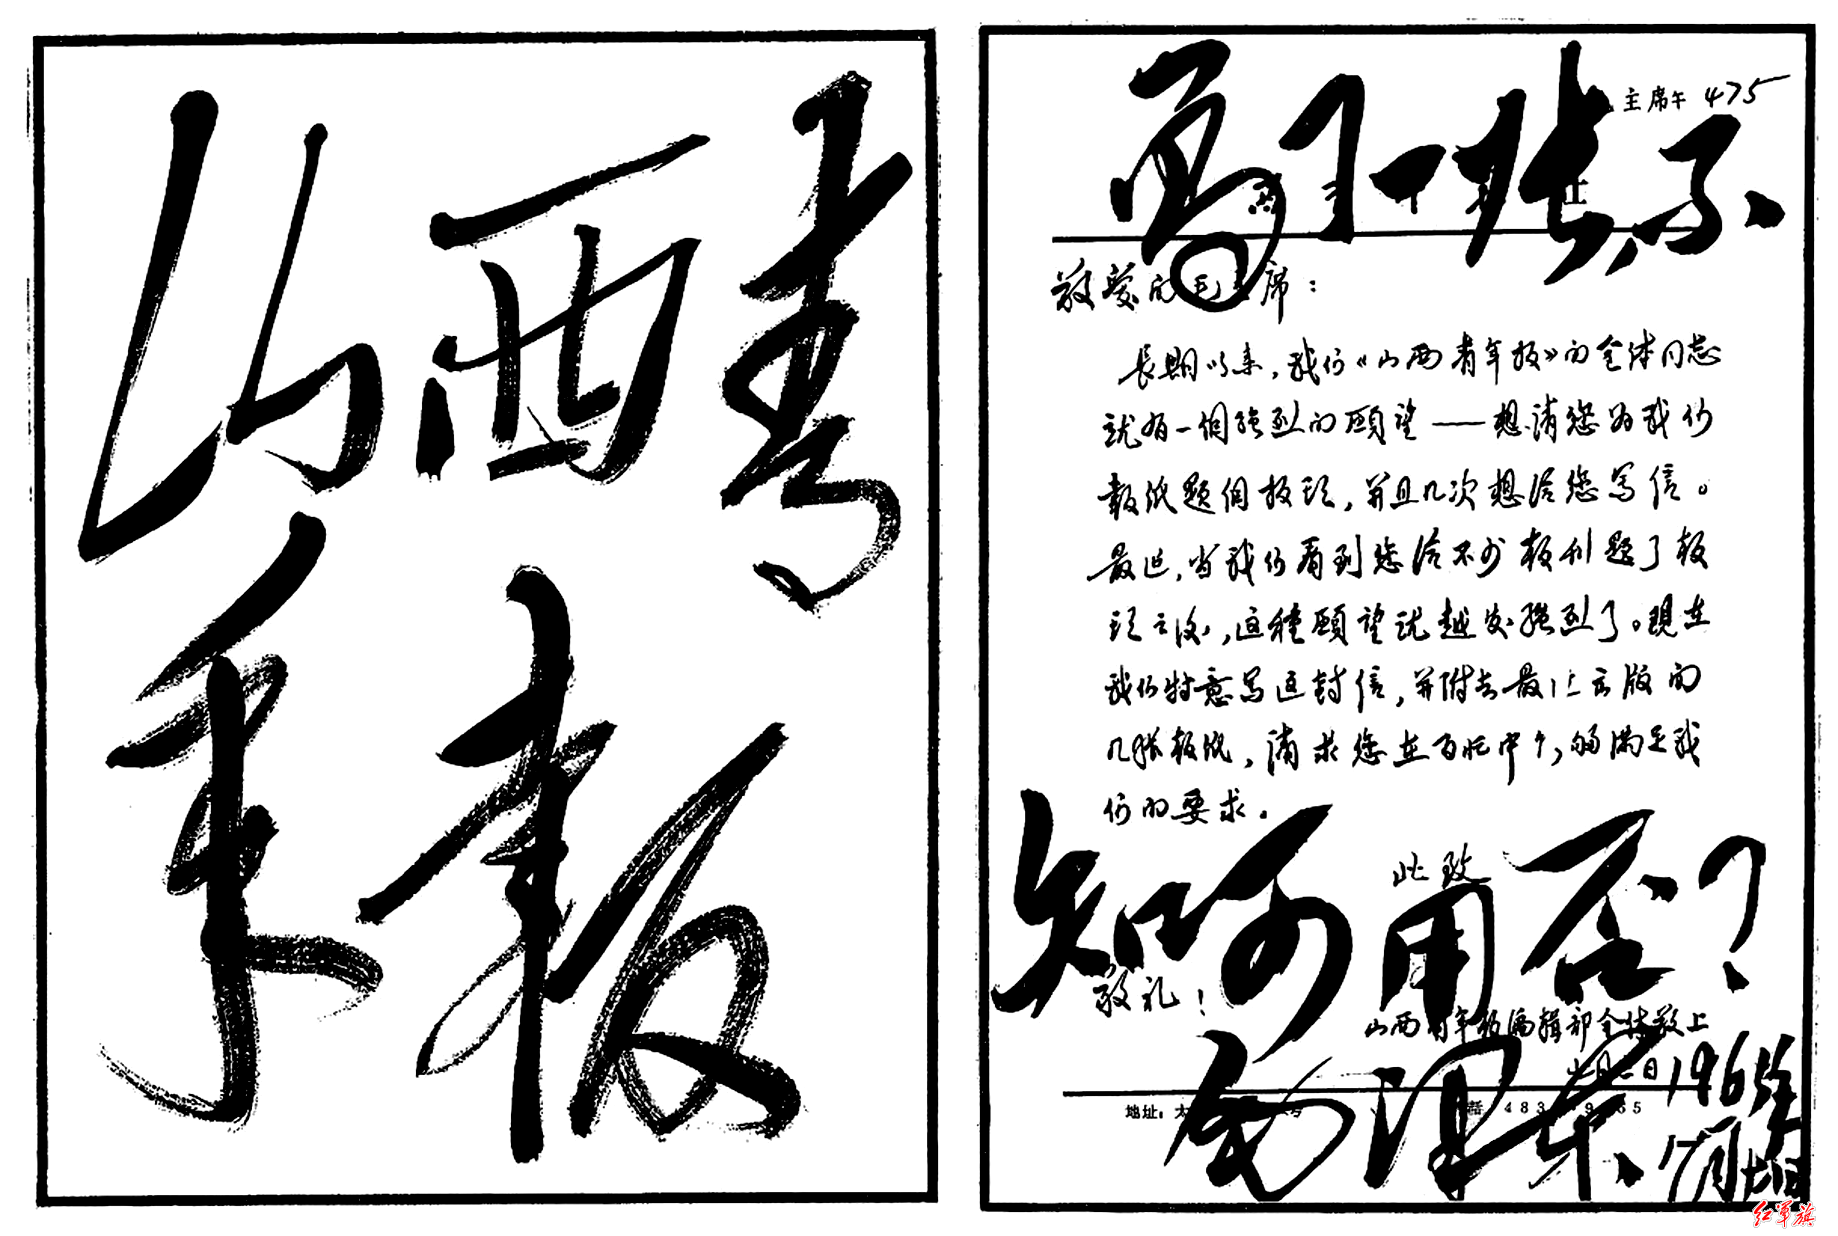 山西青
年报
主席午 475
写了一张,不
敬爱的毛主席：
长期以来，我们《山西青年报》的全体同志
就有一個强烈的願望——想请您为我们
報纸题個报头，并且几次想给您写信。
最近，当我们看到您给不少报刊题了报
头之后，这種願望就越发强烈了。現在
我们特意写这封信，并附去最近出版的
几张报纸，请求您在百忙中，能满足我
们的要求。
此致
知可用否？
敬礼！
山西青年报编辑部全体敬上
毛泽东
1965年
7月
日
地址：太
483
65
红军旗